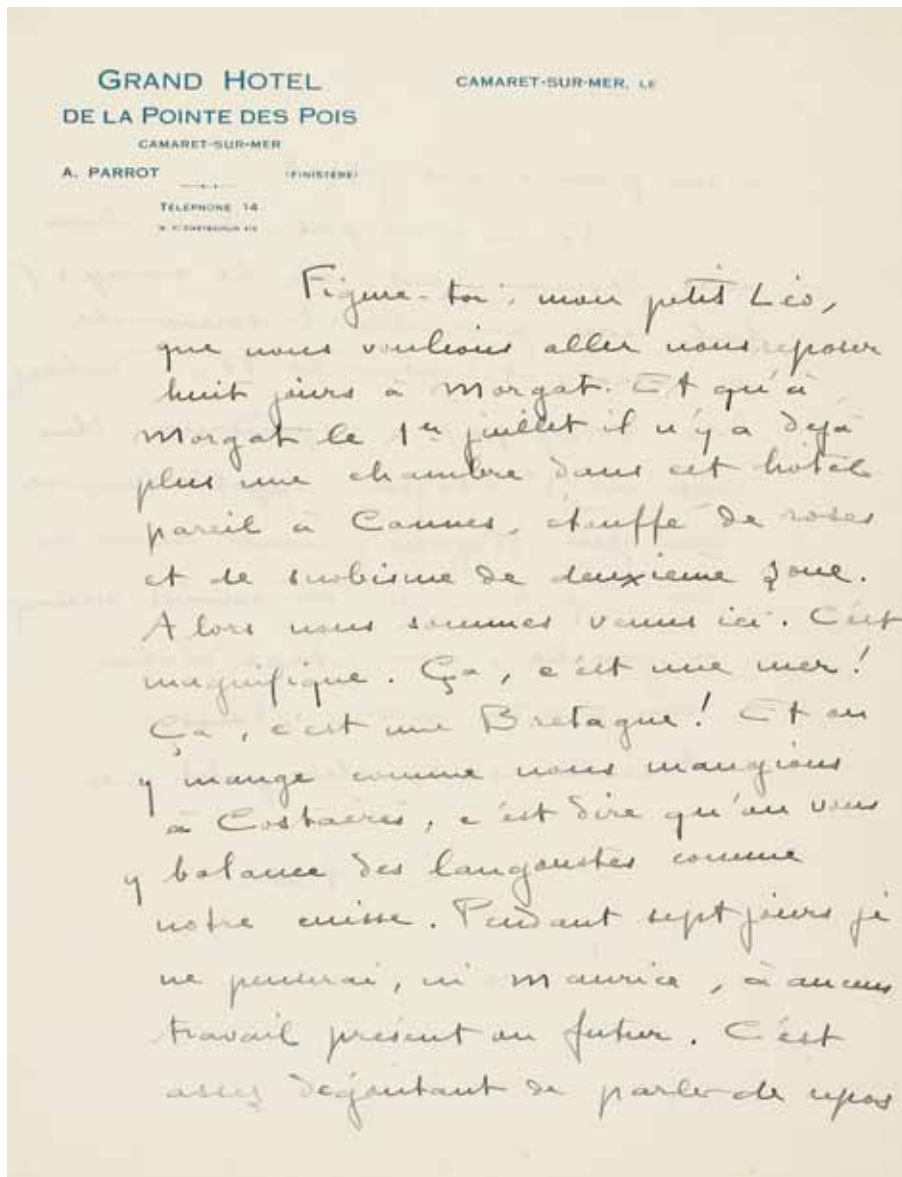 GRAND HOTEL
DE LA POINTE DES POIS
CAMARET-SUR-MER
A. PARROT (FINISTÈRE)
TÉLÉPHONE 14
CAMARET-SUR-MER, LE
Figure-toi, mon petit Léo,
que nous voulions aller nous reposer
huit jours à Morgat. Et qu'à
Morgat le 1er juillet il n'y a déjà
plus une chambre dans cet hôtel
pareil à Cannes, étouffé de roses
et de snobisme de deuxième zone.
Alors nous sommes venus ici. C'est
magnifique. Ça, c'est une mer !
Ça, c'est une Bretagne ! Et on
y mange comme nous mangions
à Costaérès, c'est dire qu'on vous
y balance des langoustes comme
notre cuisse. Pendant sept jours je
ne penserai, ni Maurice, à aucun
travail présent ou futur. C'est
assez dégoûtant de parler de repos